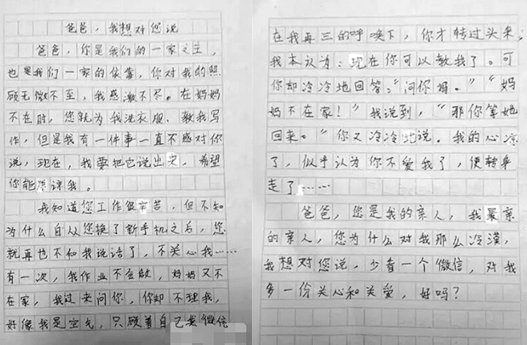 爸爸，我想对您说
爸爸，你是我们的一家之主，
也是我们一家的依靠，你对我的照
顾无微不至，我感激不尽。在妈妈
不在时，您就为我洗衣服、教我写
作，但是我有一件事一直不感对你
说，现在，我要把它说出来，希望
你能原谅我。
我知道您工作很辛苦，但不知
为什么自从您换了新手机之后，您
就再也不和我说话了，不关心我……
有一次，我作业不会做，妈妈又不
在家，我过来问你，你却不理我，
好像我是空气，只顾着自己发微信
在我再三的呼唤下，你才转过头来，
我本认为：现在你可以教我了。可
你却冷冷地回答：“问你妈。”“妈
妈不在家！”我说到，“那你等她
回来。”你又冷冷地说。我的心凉
了，似乎认为你不爱我了，便转身
走了……
爸爸，您是我的亲人，我最亲
的亲人，您为什么对我那么冷漠，
我想对您说，少看一个微信，对我
多一份关心和关爱，好吗？